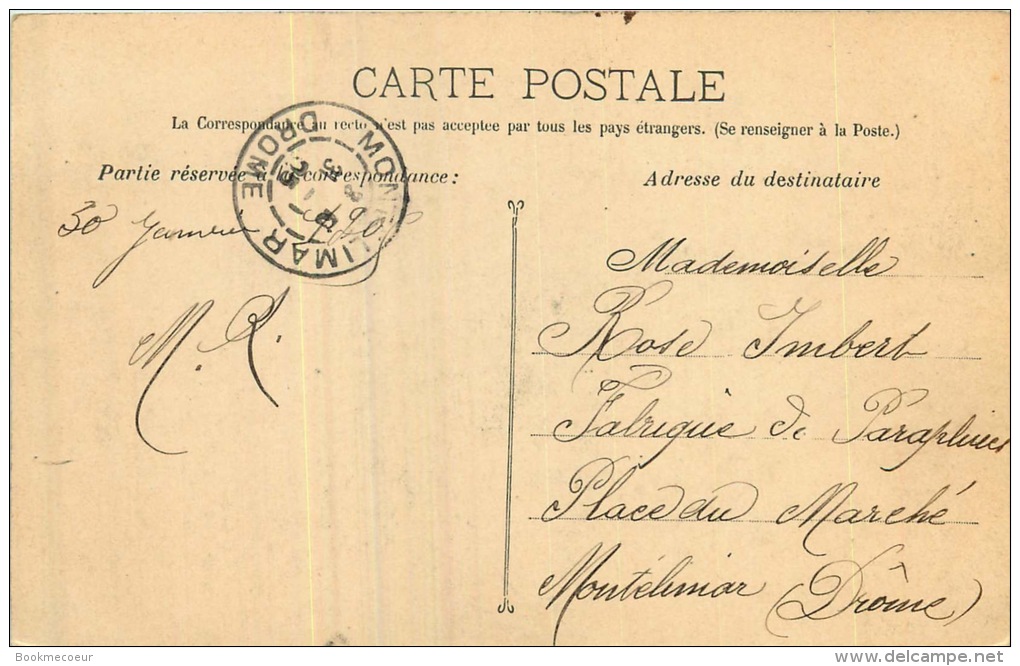 CARTE POSTALE
La Correspondance au recto n'est pas acceptee par tous les pays étrangers. (Se renseigner à la Poste.)
Partie réservée à la correspondance :
Adresse du destinataire
MONTELIMAR
DROME
30 Janvier
M. R.
Mademoiselle
Rose Imbert
Fabrique de Parapluies
Place du Marché
Montélimar (Drôme)
Bookmecoeur
delcampe.net